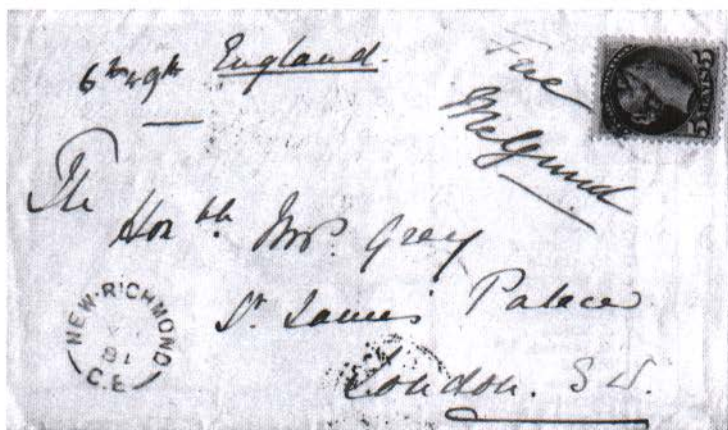 England.
Free
Melgund
The
Honble Mrs. Grey
St. James' Palace
London. S W.
NEW-RICHMOND
81
C.E
5 CENTS 5